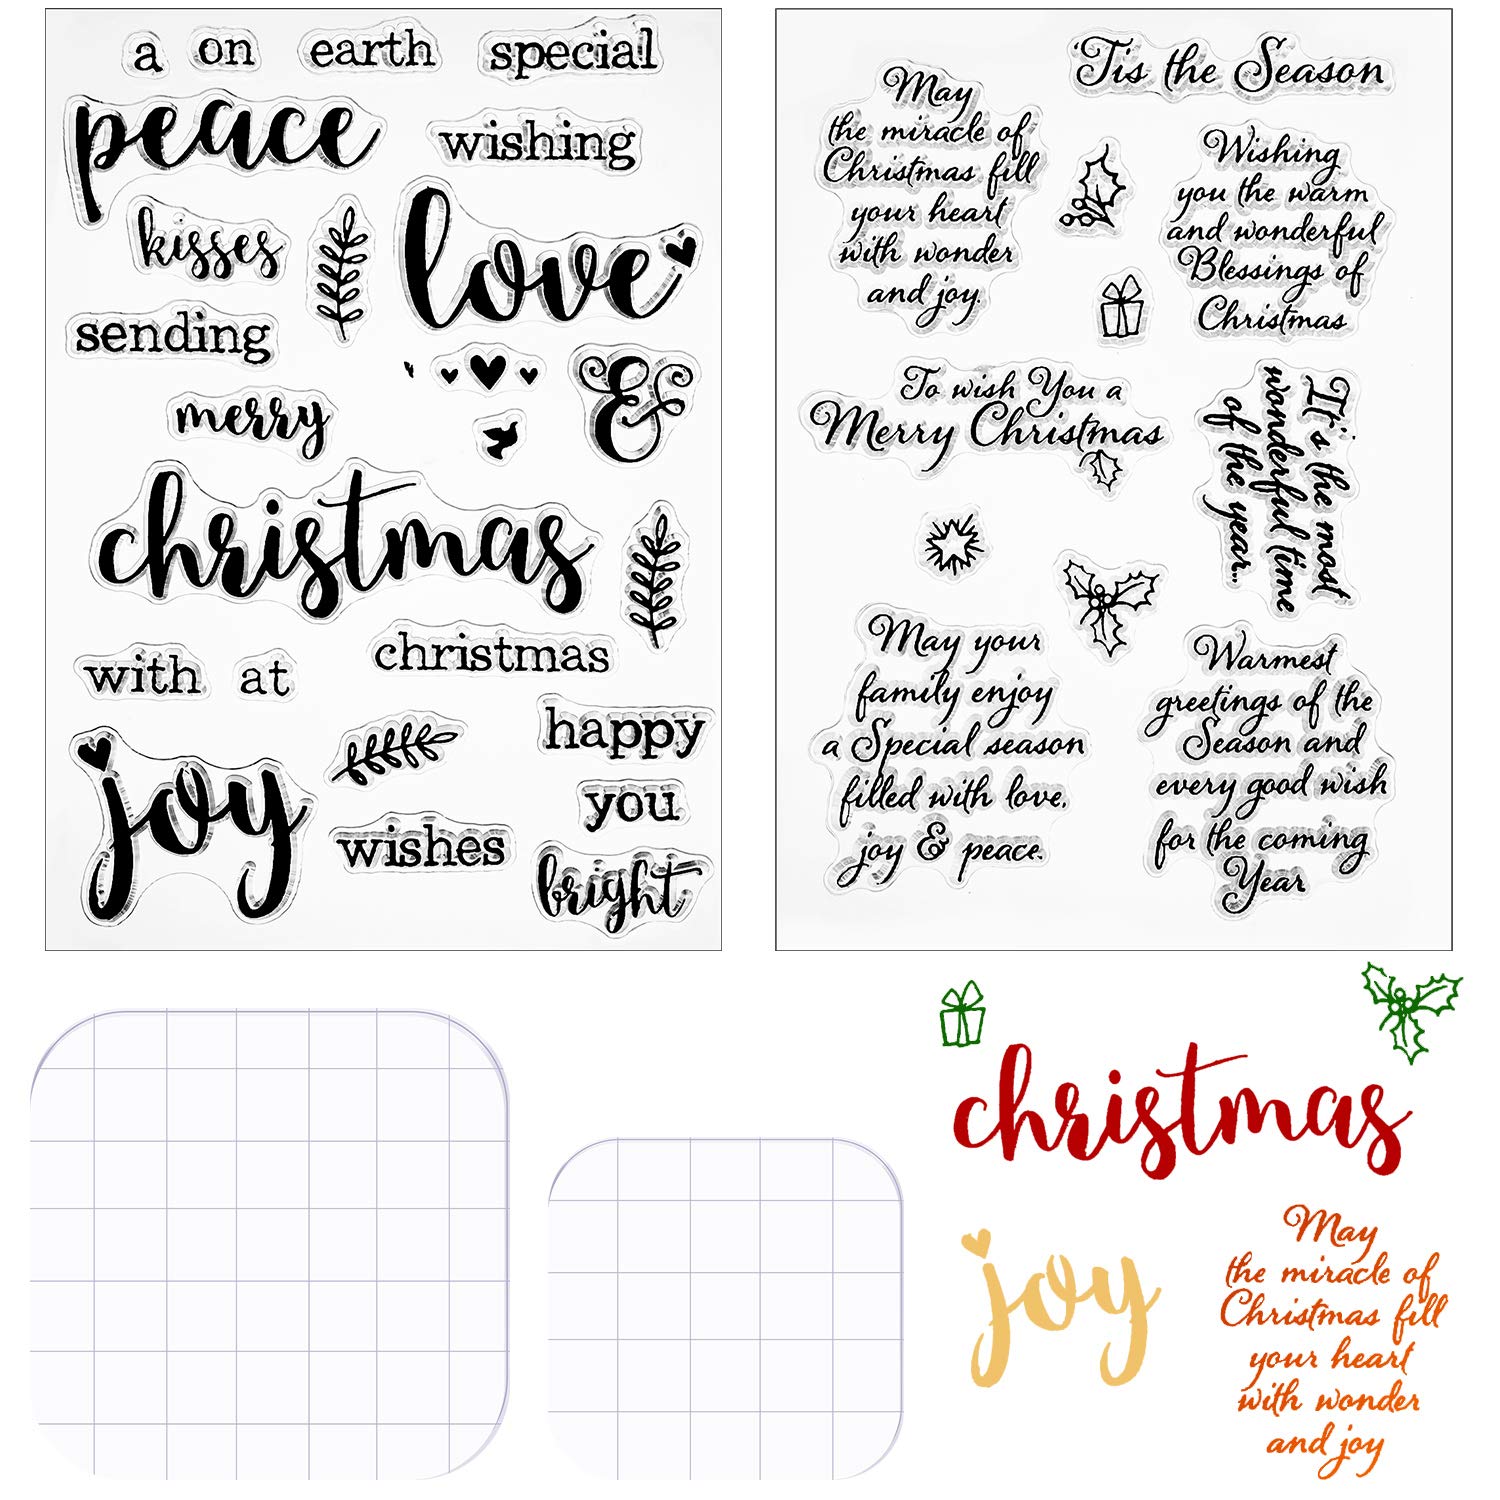 a on earth special
peace
wishing
kisses
love
sending
&
merry
christmas
christmas
with at
happy
joy
you
wishes
bright
'Tis the Season
May
the miracle of
Christmas fill
your heart
with wonder
and joy.
Wishing
you the warm
and wonderful
Blessings of
Christmas
To wish You a
Merry Christmas
It's the most
wonderful time
of the year...
May your
family enjoy
a Special season
filled with love,
joy & peace.
Warmest
greetings of the
Season and
every good wish
for the coming
Year
christmas
joy
May
the miracle of
Christmas fill
your heart
with wonder
and joy